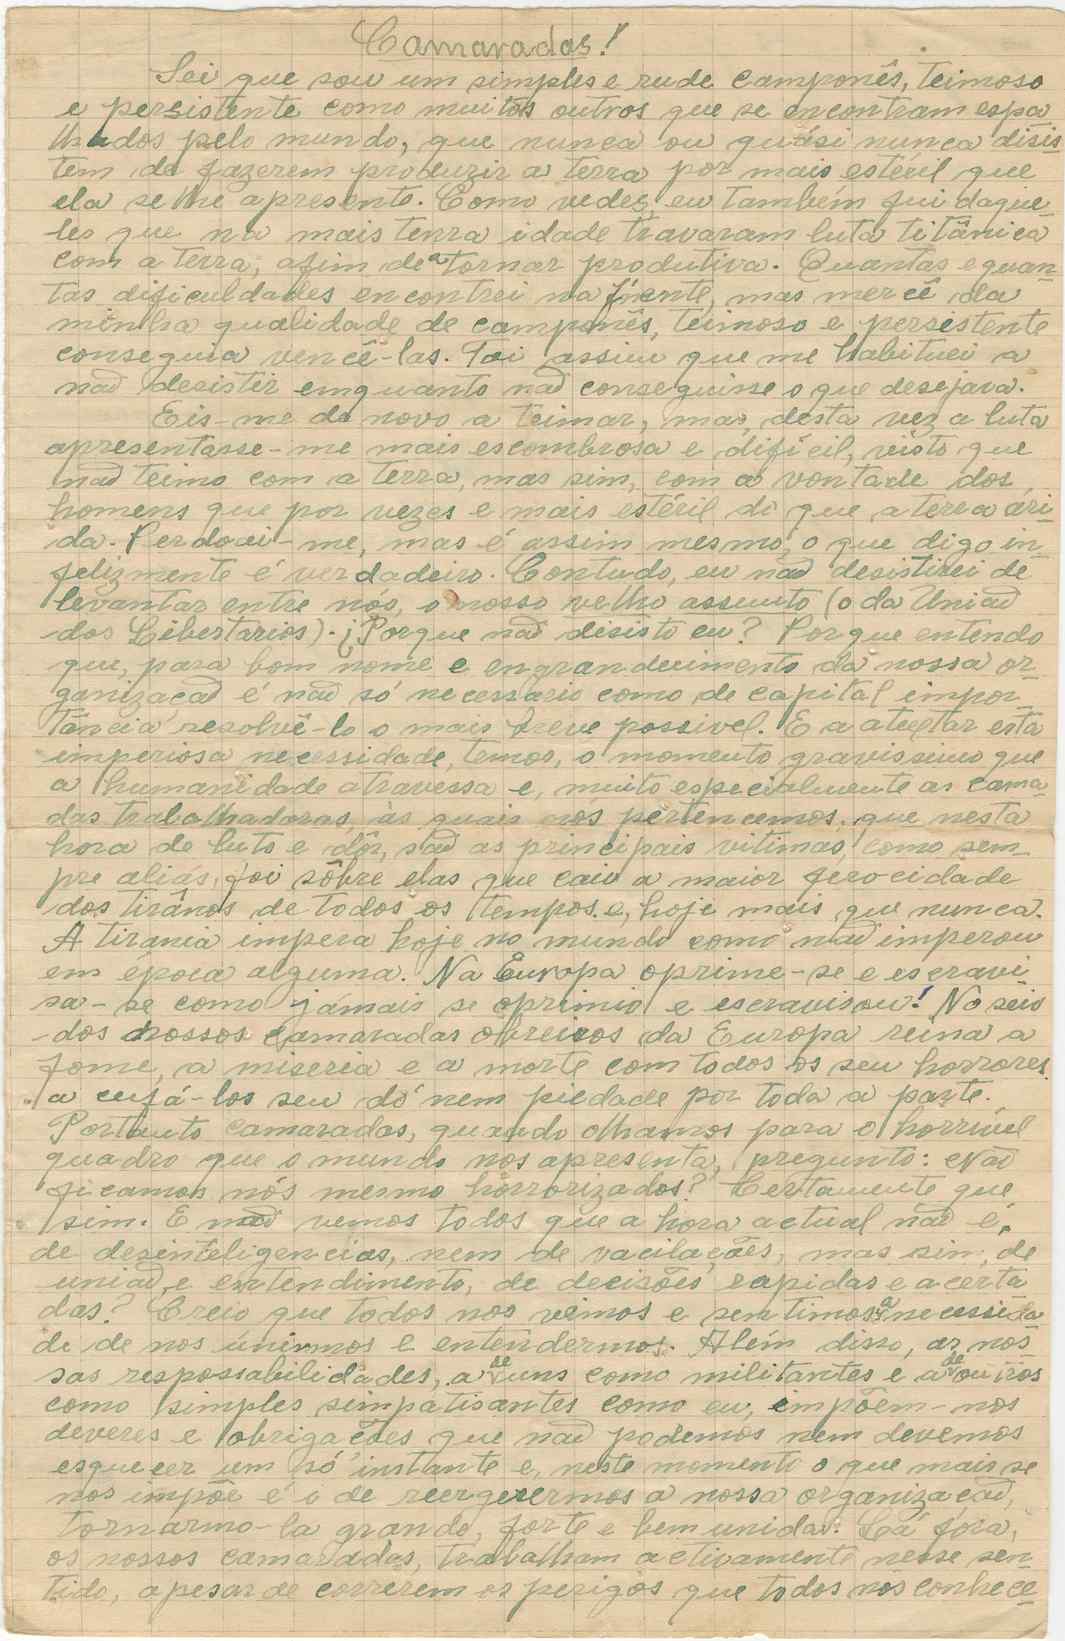 Camaradas!
Sei que sou um simples e rude camponês, teimoso
e persistente como muitos outros que se encontram espa
lhados pelo mundo, que nunca ou quási nunca disis
tem de fazerem produzir a terra por mais estéril que
ela se lhe apresente. Como vedes eu também fui daque-
les que na mais tenra idade travaram luta titânica
com a terra, afim de a tornar produtiva. Quantas e quan-
tas dificuldades encontrei na frente, mas mercê da
minha qualidade de camponês, teimoso e persistente
conseguia vencê-las. Foi assim que me habituei a
naõ desistir emquanto naõ conseguisse o que desejava.
Eis-me de novo a teimar, mas, desta vez a luta
apresentasse-me mais escombrosa e difícil, visto que
naõ teimo com a terra, mas sim, com a vontade dos
homens que por vezes e mais estéril do que a terra ári-
da. Perdoai-me, mas é assim mesmo, o que digo in-
felizmente é verdadeiro. Contudo, eu naõ desistirei de
levantar entre nós, o nosso velho assunto (o da Uniaõ
dos Libertarios). ¿Porque naõ disisto eu? Porque entendo
que, para bom nome e engrandecimento da nossa or-
ganizaçaõ é naõ só necessário como de capital impor-
tância resolvê-lo o mais breve possivel. E a atestar esta
imperiosa necessidade, temos, o momento gravissimo que
a humanidade atravessa e, muito especialmente as cama-
das trabalhadoras, às quais nós pertencemos, que nesta
hora de luto e dôr, saõ as principais vitimas, como sem-
pre aliás, foi sôbre elas que caiu a maior ferocidade
dos tirânos de todos os tempos e, hoje mais que nunca.
A tirania impera hoje no mundo como naõ imperou
em época alguma. Na Europa oprime-se e escravi
sa-se como jámais se oprimio e escravisou! No seio
dos nossos camaradas obreiros da Europa reina a
fome, a miseria e a morte com todos os seu horrores
a ceifá-los seu dó nem piedade por toda a parte.
Portanto camaradas, quando olhamos para o horrivel
quadro que o mundo nos apresenta, pregunto: Naõ
ficamos nós mesmo hôrrorizados? Certamente que
sim. E naõ vemos todos que a hora actual naõ é,
de desinteligencias, nem de vacilações, mas sim, de
uniaõ e entendimento, de decisões rapidas e acerta
das? Creio que todos nos vêmos e sentimos a necessida
de de nos únirmos e entendermos. Além disso, as nos-
sas respossabilidades, a de uns como militantes e a de outros
como simples simpatisantes como eu, impõem-nos
deveres e obrigações que naõ podemos nem devemos
esquecer um só instante e, neste momento o que mais se
nos impõe é o de reerguermos a nossa organizaçaõ,
tornarmo-la grande, forte e bem unida. Lá fora,
os nossos camaradas, trabalham activamente nesse sen
tido, apesar de correrem os perigos que todos nós conhece